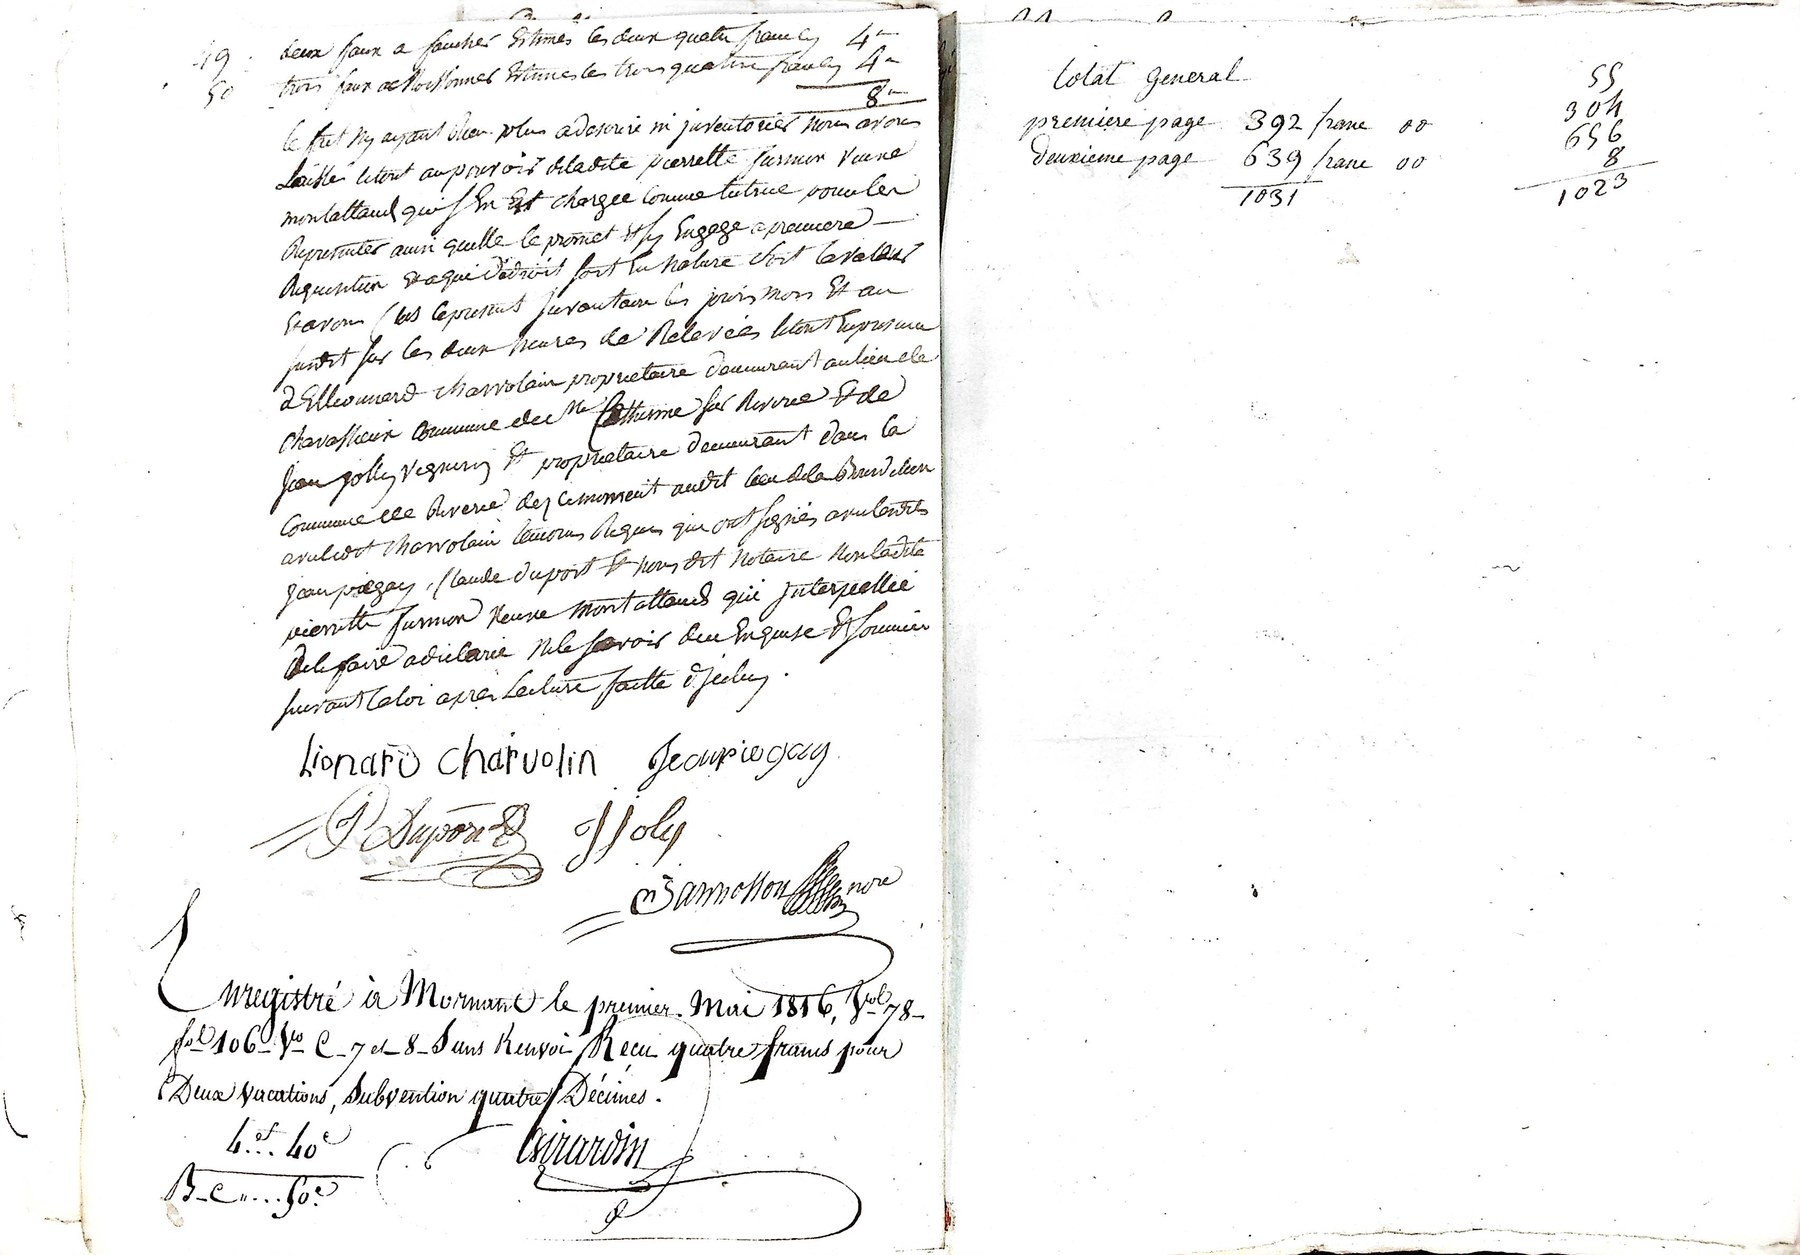 49 . deux faux a faucher Estimés les deux quatre francs 4"
50 trois faux a moissonner Estimées les trois quatre francs 4"
8"
le fait ny ayant Rien plus adescrire ni juventorier nous avons
laissé letout aupouvoir deladite pierrette jurmon veuve
montalland qui sEn Est chargée Comme tutrice pour les
Representer ainsi quelle le promet Et sy Engage apremiere
Requisition Et aqui dedroit soit En nature soit la valeur
Et avons Clos lepresent juvantaire les jours mois Et an
susdit sur les deux heures de Relevées letout Enpresence
dEllionnard charvolain proprietaire demeurant aulieu de
chavassieux Commune de Catherine sur Riverie Et de
jean jolly vigneron Et proprietaire demeurant dans la
Commune de Riverie de cemoment audit lieu dela
avecledit charvolain temoins Requis qui ont signés aveclesdits
jean piegay, Claude duport Et nous dit notaire non ladite
pierrette jurmon veuve montalland qui jnterpellée
dele faire adéclaré nele savoir de ce Enquise Et sommée
suivant la loi apres lecture faitte djcelluy.
Lionard Charvolin jeanpiegay
C Duport J joly
Bannosson nore
Enregistré à Mornant le premier Mai 1816, Vol 78
fol 106 Vo C 7 et 8 Sans Renvoi Reçu quatre francs pour
Deux Vacations, Subvention quatre Décimes.
4 f 40 c
Girardin
B-C".... 50 c
total general
premiere page 392 franc 00
deuxieme page 639 franc 00
1031
55
304
656
8
1023